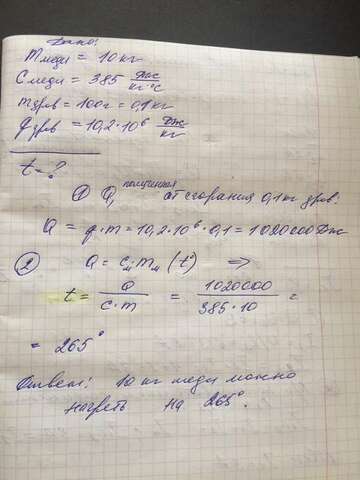 Дано:
m меди = 10 кг
C меди = 385 Дж/кг·°C
m дров = 100г = 0,1 кг
q дров = 10,2·10⁶ Дж/кг
t - ?
① Q, полученная от сгорания 0,1 кг дров:
Q = q·m = 10,2·10⁶·0,1 = 1020000 Дж
② Q = cм·mм (t°) ⇒
t = Q/c·m = 1020000/385·10 =
= 265°
Ответ: 10 кг меди можно
нагреть на 265°.